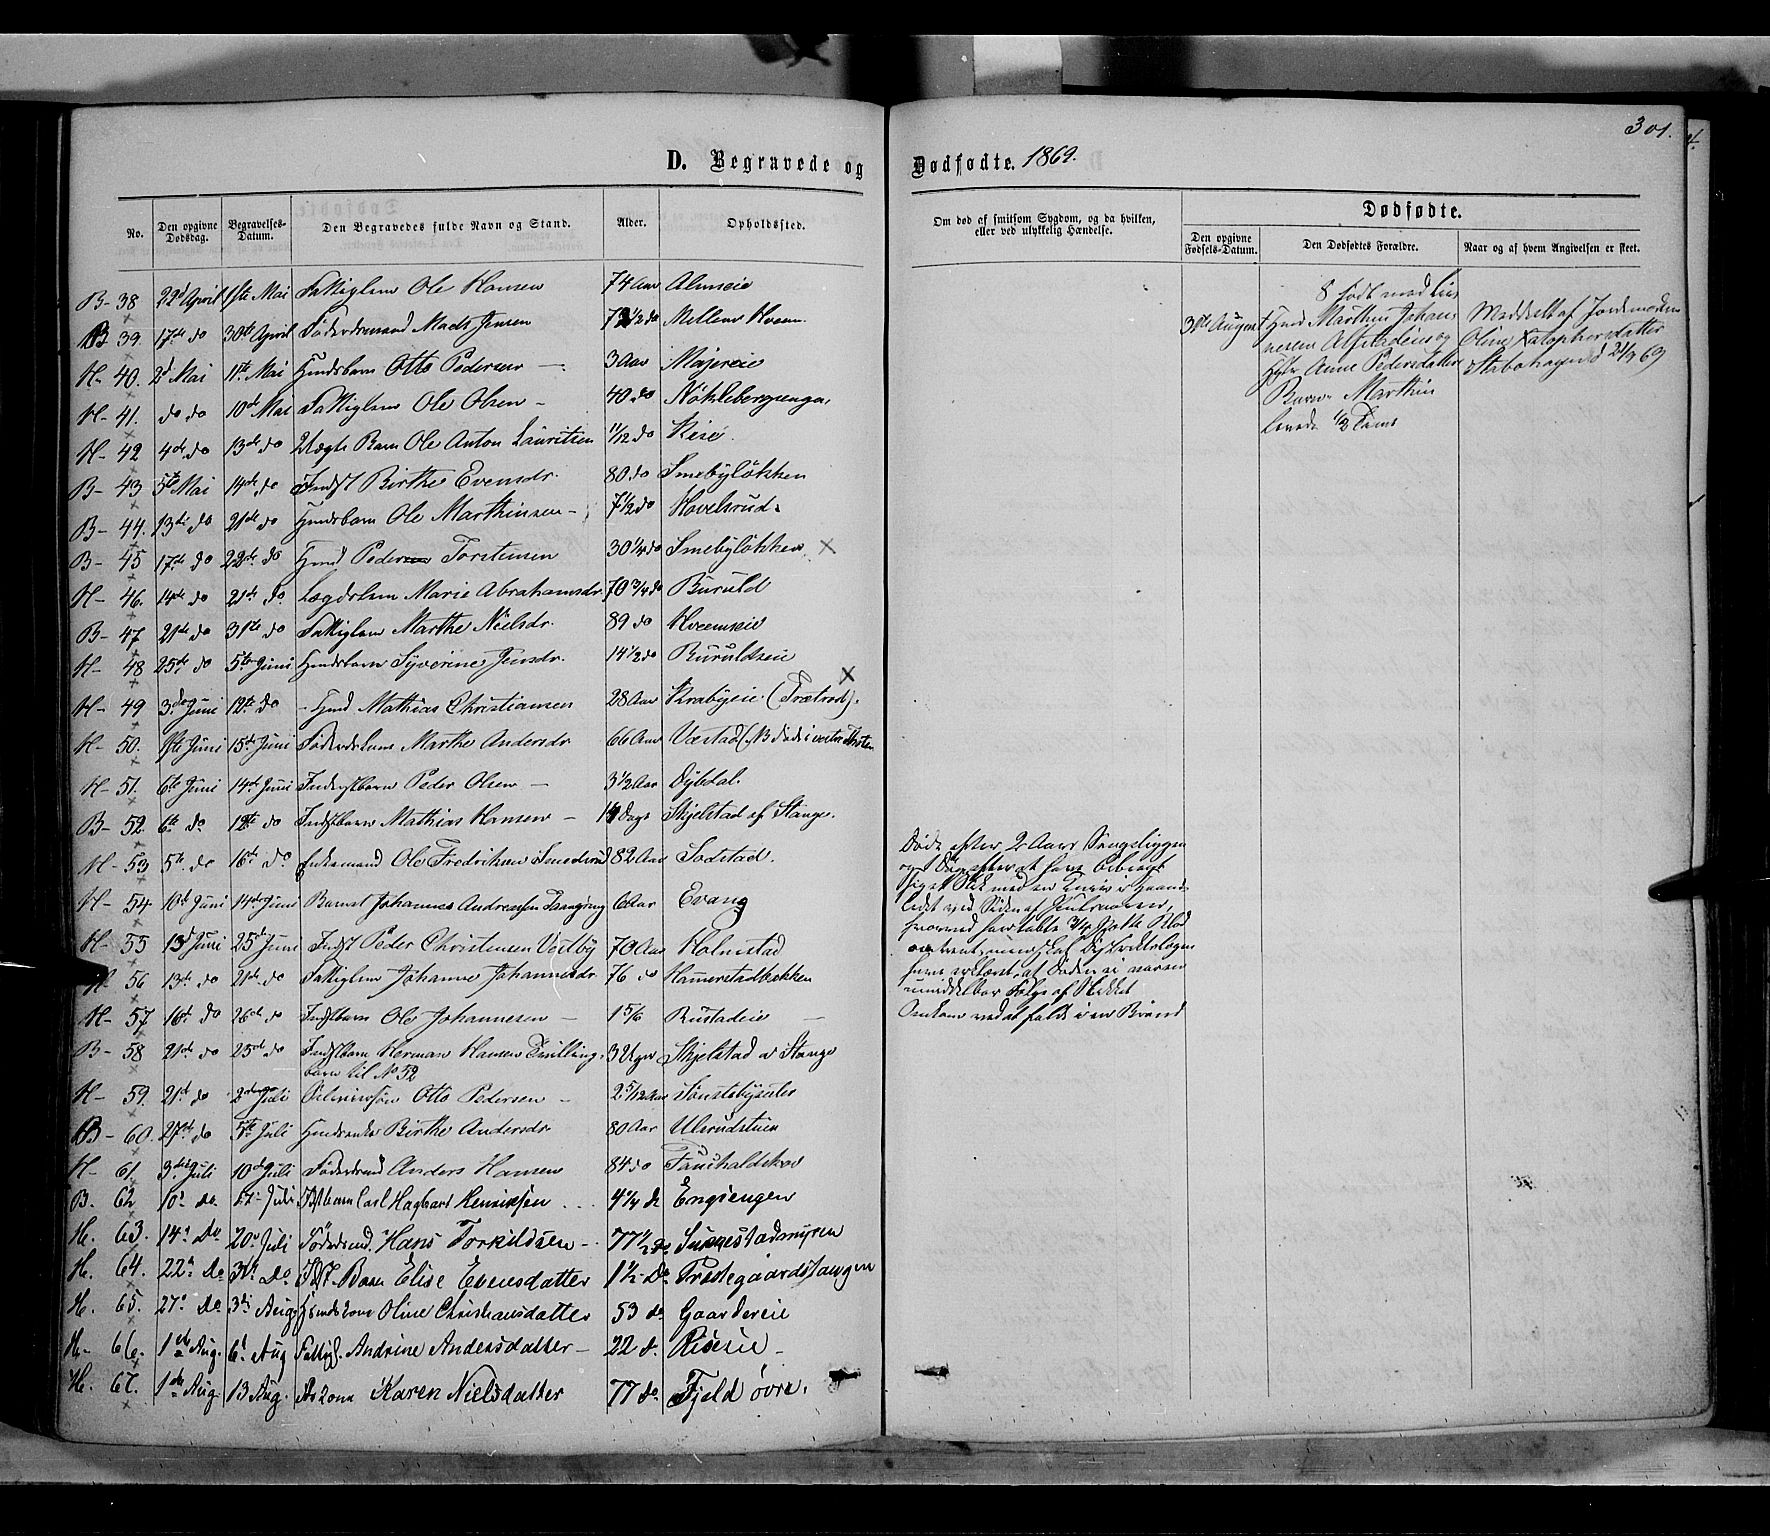 301.
D. Begravede og Dødfødte. 1869.
No. | Den opgivne Dødsdag. | Begravelses-Datum. | Den Begravedes fulde Navn og Stand. | Alder. | Opholdssted. | Om død af smitsom Sygdom, og da hvilken, eller ved ulykkelig Hændelse. | Dødfødte.
Den opgivne Fødsels-Datum. | Den Dødfødtes Forældre. | Naar og af hvem Angivelsen er skeet.
B- 38 22d April 1ste Mai Fattiglem Ole Hansen 74 Aar Almeie
B 39. 17de do 30te April Føderaadsmand Mads Jensen do Mellem Hveem
H- 40. 2d Mai 11te Mai Huusbarn Otto Pedersen - 3 Aar Majereie
H- 41. do do 10de Mai Fattiglem Ole Olsen - 40 do Nøklebergsengen
H- 42 4de do 13de do Uægte Barn Ole Anton Lauritsen 11/12 do Rise.
B- 43 5te Mai 14de do Indst Birthe Evensdr. 80 do Smebyløkken
B- 44. 13de do 21de do Huusbarn Ole Marthinsen - 7 1/2 do Hovelsrud
B- 45 17de do 22de do Huusmd Peder Torstensen 30 1/4 do Smebyløkken
H- 46. 14de do 21de do Lægdslem Marie Abrahamsdr. 70 3/4 do Buruld
B- 47 21de do 31te do Fattiglem Marthe Nielsdr. 89 do Hveemseie
H- 48 25de do 5te Juni Huusbarn Syverine Jensdr. 14 1/2 do Buruldseie
H- 49 3de Juni 12te do - Huusmd Mathias Christiansen 28 Aar Krabyeie (Trætrød).
H- 50. Juni 15de Juni Marthe Andersdr 66 Aar Værstad (NB døde i vestre Thoten
H- 51. 6te Juni 14de Juni Inderstbarn Peder Olsen - 3 1/2 Aar Dybdal.
B- 52. 6te do 12te do Indstbarn Mathias Hansen - 14 Dage Skjelstad af Stange.
H- 53 5te do 16de do Enkemand Ole Fredriksen Smedsrud 82 Aar Sodstad.
H- 54 10de Juni 14de Juni Barnet Johannes Andreassen 6 Aar Evang
H- 55 13de Juni 25de Juni Indst Peder Christensen Vestby 70 Aar Holmstad
H- 56 13de do 21de do Fattiglem Johanne Johannesdr. 76 do Hammerstadbakken
H- 57 16de do 26de do Indstbarn Ole Johannesen - 1 5/6 Rustadeie -
B- 58 21de do 25de do Indstbarn Herman Hansen Tvilling-
barn til No 52 3 Uger Skjelstad i Stange
H- 59. 21de do 2den Juli Otto Pedersen - 2 5/12 Aar
B- 60. 27de do 5te Juli Huusenke Birthe Andersdr 80 Aar Ulerudstuen
H- 61. 3die Juli 10de Juli Føderaadsmd Anders Hansen 84 do Fauchaldskov
B. 62 10de do. Juli Indstbarn Carl Hagbart Henriksen . . . 4 1/4 do Engsengen
H. 63. 14de Do 20de Juli Føderaadsmd. Hans Torkildsen - 77 1/2 do. Sukkestadmyren
H. 64. 22de Do 31te Do. Indst. Barn Elise Evensdatter 1 1/2 Do Prestegaardstangen
H. 65. 27de Do 3die Aug. Huuskone Oline Christiansdatter 53 do. Gaardereie
H- 66. 1ste Aug. 6te Aug Fattigl. Andrine Andersdatter - 22 d. Riseeie -
H. 67. 1ste Aug 13 Aug. Karen Nielsdatter 77 do. Fjeld øvre.
Døde efter 2 Aars Sengeliggen
og 1 Dag efter at have bibragt
sig et Stik med en Kniv i Haand-
ledet ved Siden af Pulsaaren,
hvorved hun tabte 3/4 Potte Blod
omtrent, men skal Distriktslægen
have erklæret, at Døden ei var en
umiddelbar Følge af Stikket
Omkom ved at falde i en Brønd
8 født med Liv
31te August Huusmd Marthin Johan-
nesen Alfstadeie og
Hustru Anne Pedersdatter
Barn Marthin
Levede 1/2 Time
Meddelt af Jordemoderen
Oline Kristophersdatter
Stabohagen d 21/9 69